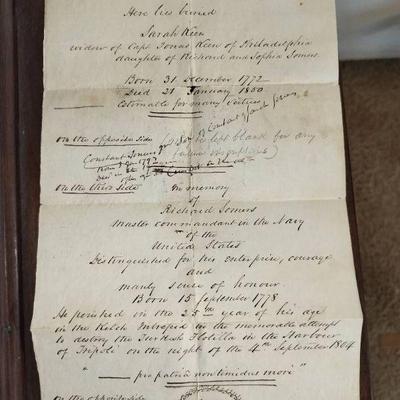 Here lies buried
Sarah Keen
widow of Capt Jonas Keen of Philadelphia
daughter of Richard and Sophia Somers
Born 31 December 1772
Died 21 January 1850
Estimable for many virtues
on the opposite side (to be left blank for any
future inscriptions)
Constant Somers
on the third side In memory
of
Richard Somers
Master commandant in the Navy
of the
United States
Distinguished for his enterprise, courage
and
manly sense of honour.
Born 15 September 1778
He perished in the 25th year of his age
in the Ketch Intrepid in the memorable attempt
to destroy the Turkish Flotilla in the Harbour
of Tripoli on the night of the 4th September 1804
"pro patria non timidus mori"
on the opposite side